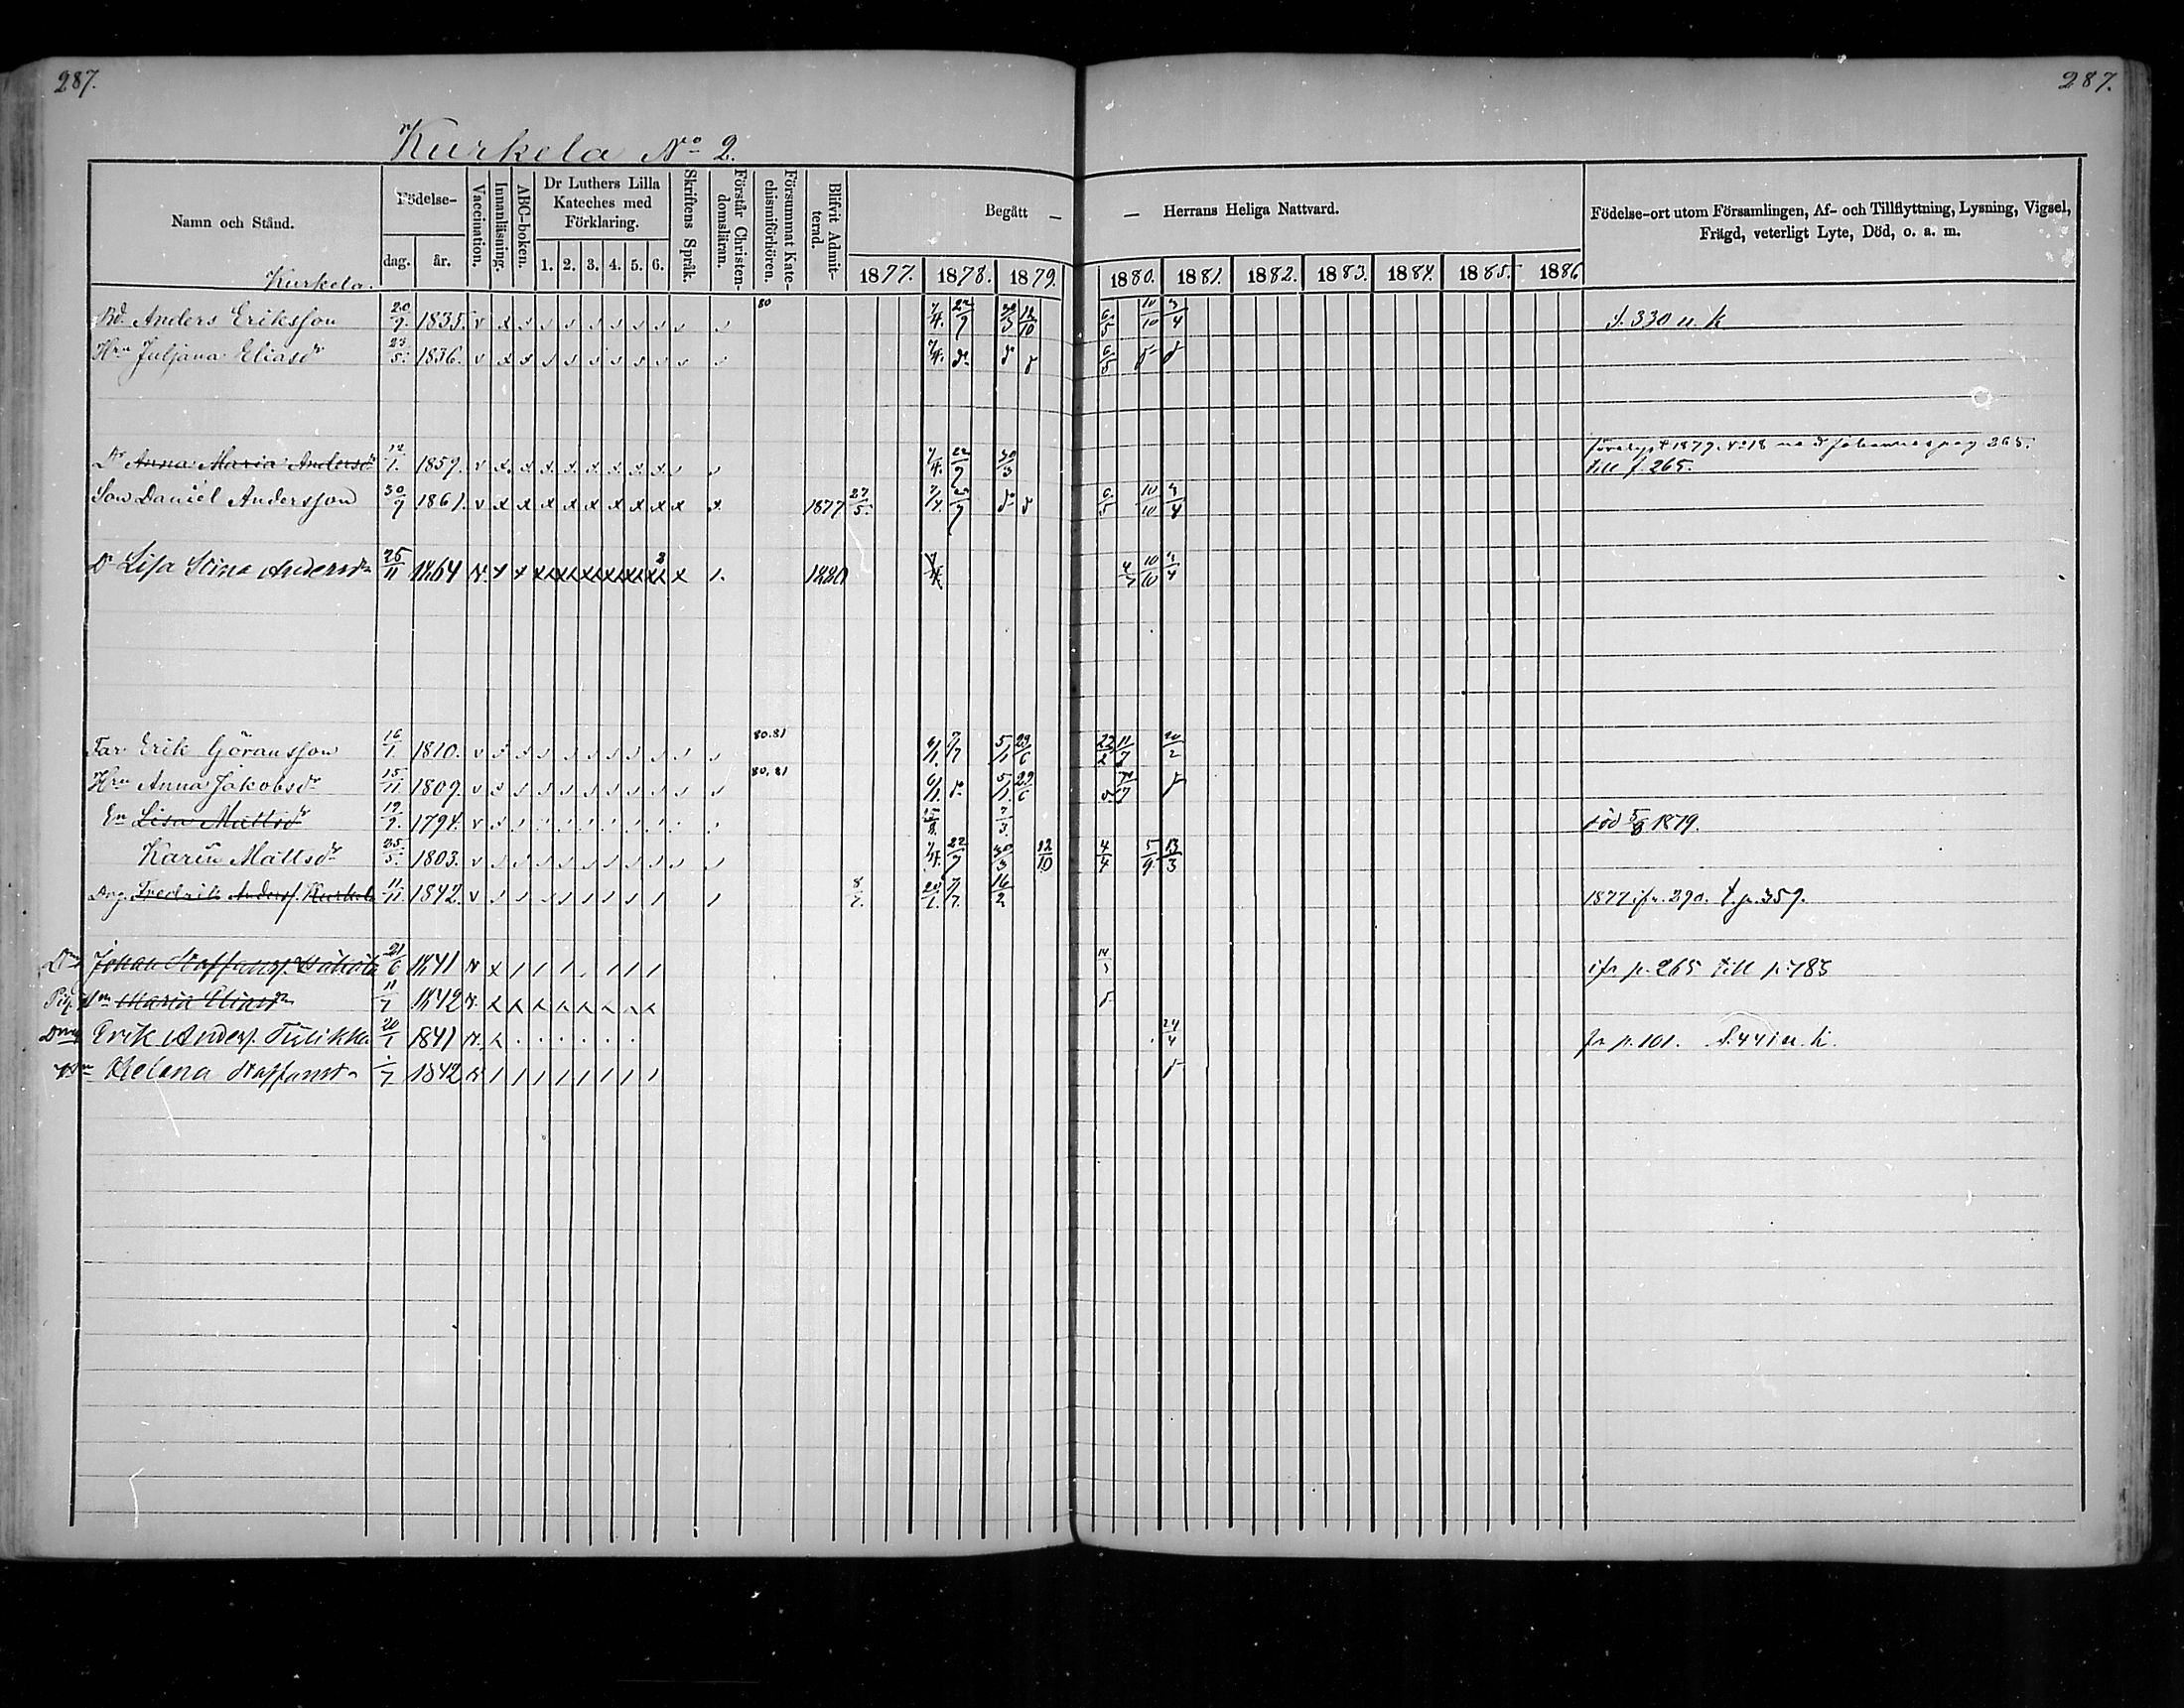 287. 287.
Kurkela No 2.
Namn och Stånd. Födelse- dag. år. Vaccination. Innanläsning. ABC-boken. Dr Luthers Lilla Kateches med Förklaring. 1. 2. 3. 4. 5. 6. Skriftens Språk. Förstår Christen-domsläran. Försummat Kate-chismiförhören. Blifvit Admit-terad. Begått — — Herrans Heliga Nattvard. 1877. 1878. 1879. 1880. 1881. 1882. 1883. 1884. 1885. 1886 Födelse-ort utom Församlingen, Af- och Tillflyttning, Lysning, Vigsel, Frägd, veterligt Lyte, Död, o. a. m.
Kurkela.
Bd. Anders Eriksson 20/9. 1835. v x 80 7/4. 22/9 30/3 12/10 6/5 10/10 3/4 f. 330 u. k
Hru Juljana Eliasdr 23/5. 1836. v x x 7/4. do do 6/5
Dr Anna Maria Andersdr 12/1. 1859. v x. x. x. x. x. x. x. x. 7/4. 22/9 30/3 till f. 265.
Son Daniel Andersson 30/9 1861. v x x x x x x x x x x. 1877 27/5. 7/4 22/9 6/5 10/10 3/4
Dr Lisa Stina Andersdr 25/11 1864 1880 7/4 4/7 10/10 3/4
Far Erik Göransson 16/1. 1810. v 80.81 6/1. 7/7 5/1 29/6 22/2 11/7 20/2
Hru Anna Jakobsdr 15/11 1809. v 80.81 6/1. do 5/1. 29/6
En Lisa Mattsdr 19/9. 1794. v död 5/8 1879.
Karin Mattsdr 25/5. 1803. v 7/4. 22/9 30/3 12/10 4/4 5/9 13/3
Dräg. Fredrik Andersf. Kurkela 11/11. 1842. v 8/7. 20/1. 7/7. 16/2 1877 ifr. 290. t. p. 359.
Johan Staffansf. 21/6 1841 14/3 ifr p. 265 till p. 185
Pig. Maria Eliasdr 11/7 1842
Dräng Erik Andersf. Tulikka 20/1 1841 24/4 fr p. 101. f. 441 u. k.
Helena Staffansdr 1842